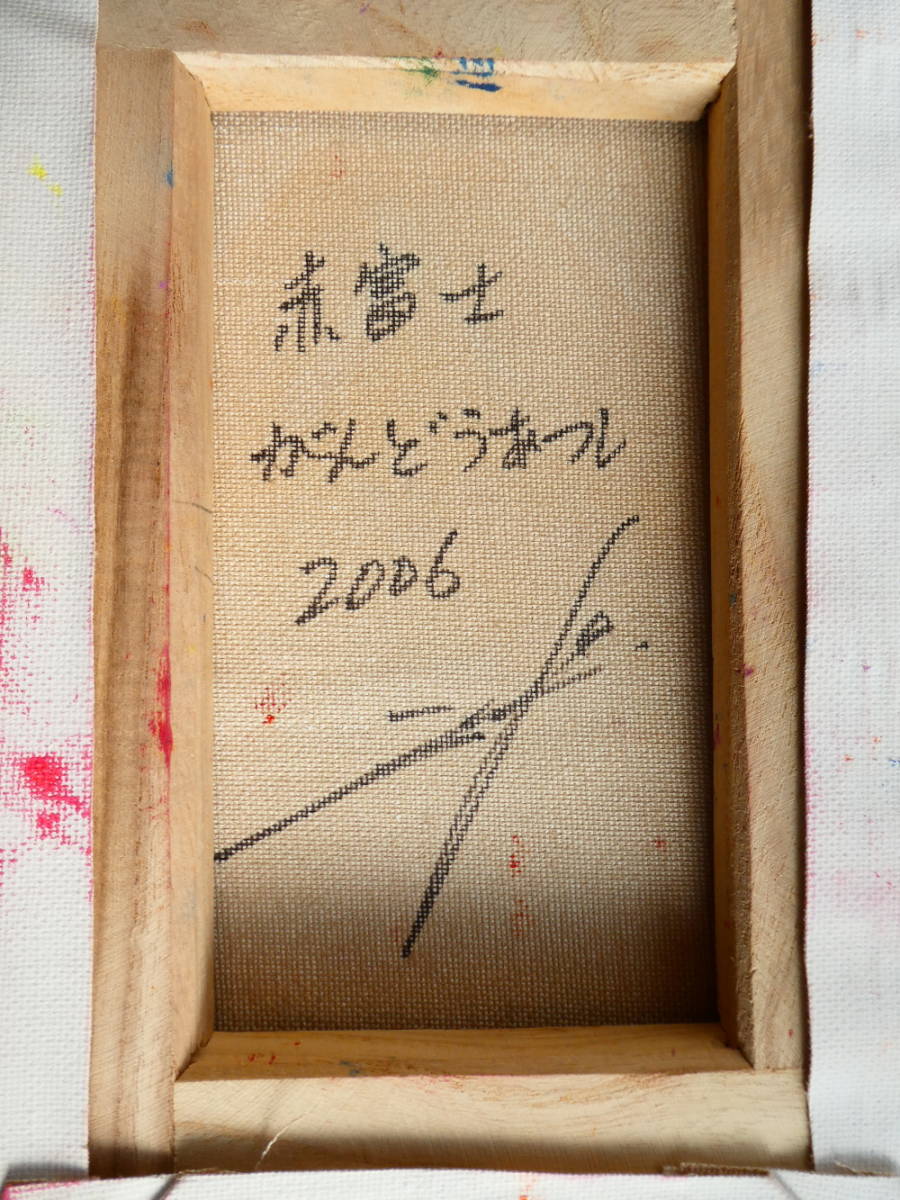 赤富士
がんどうあつし
2006